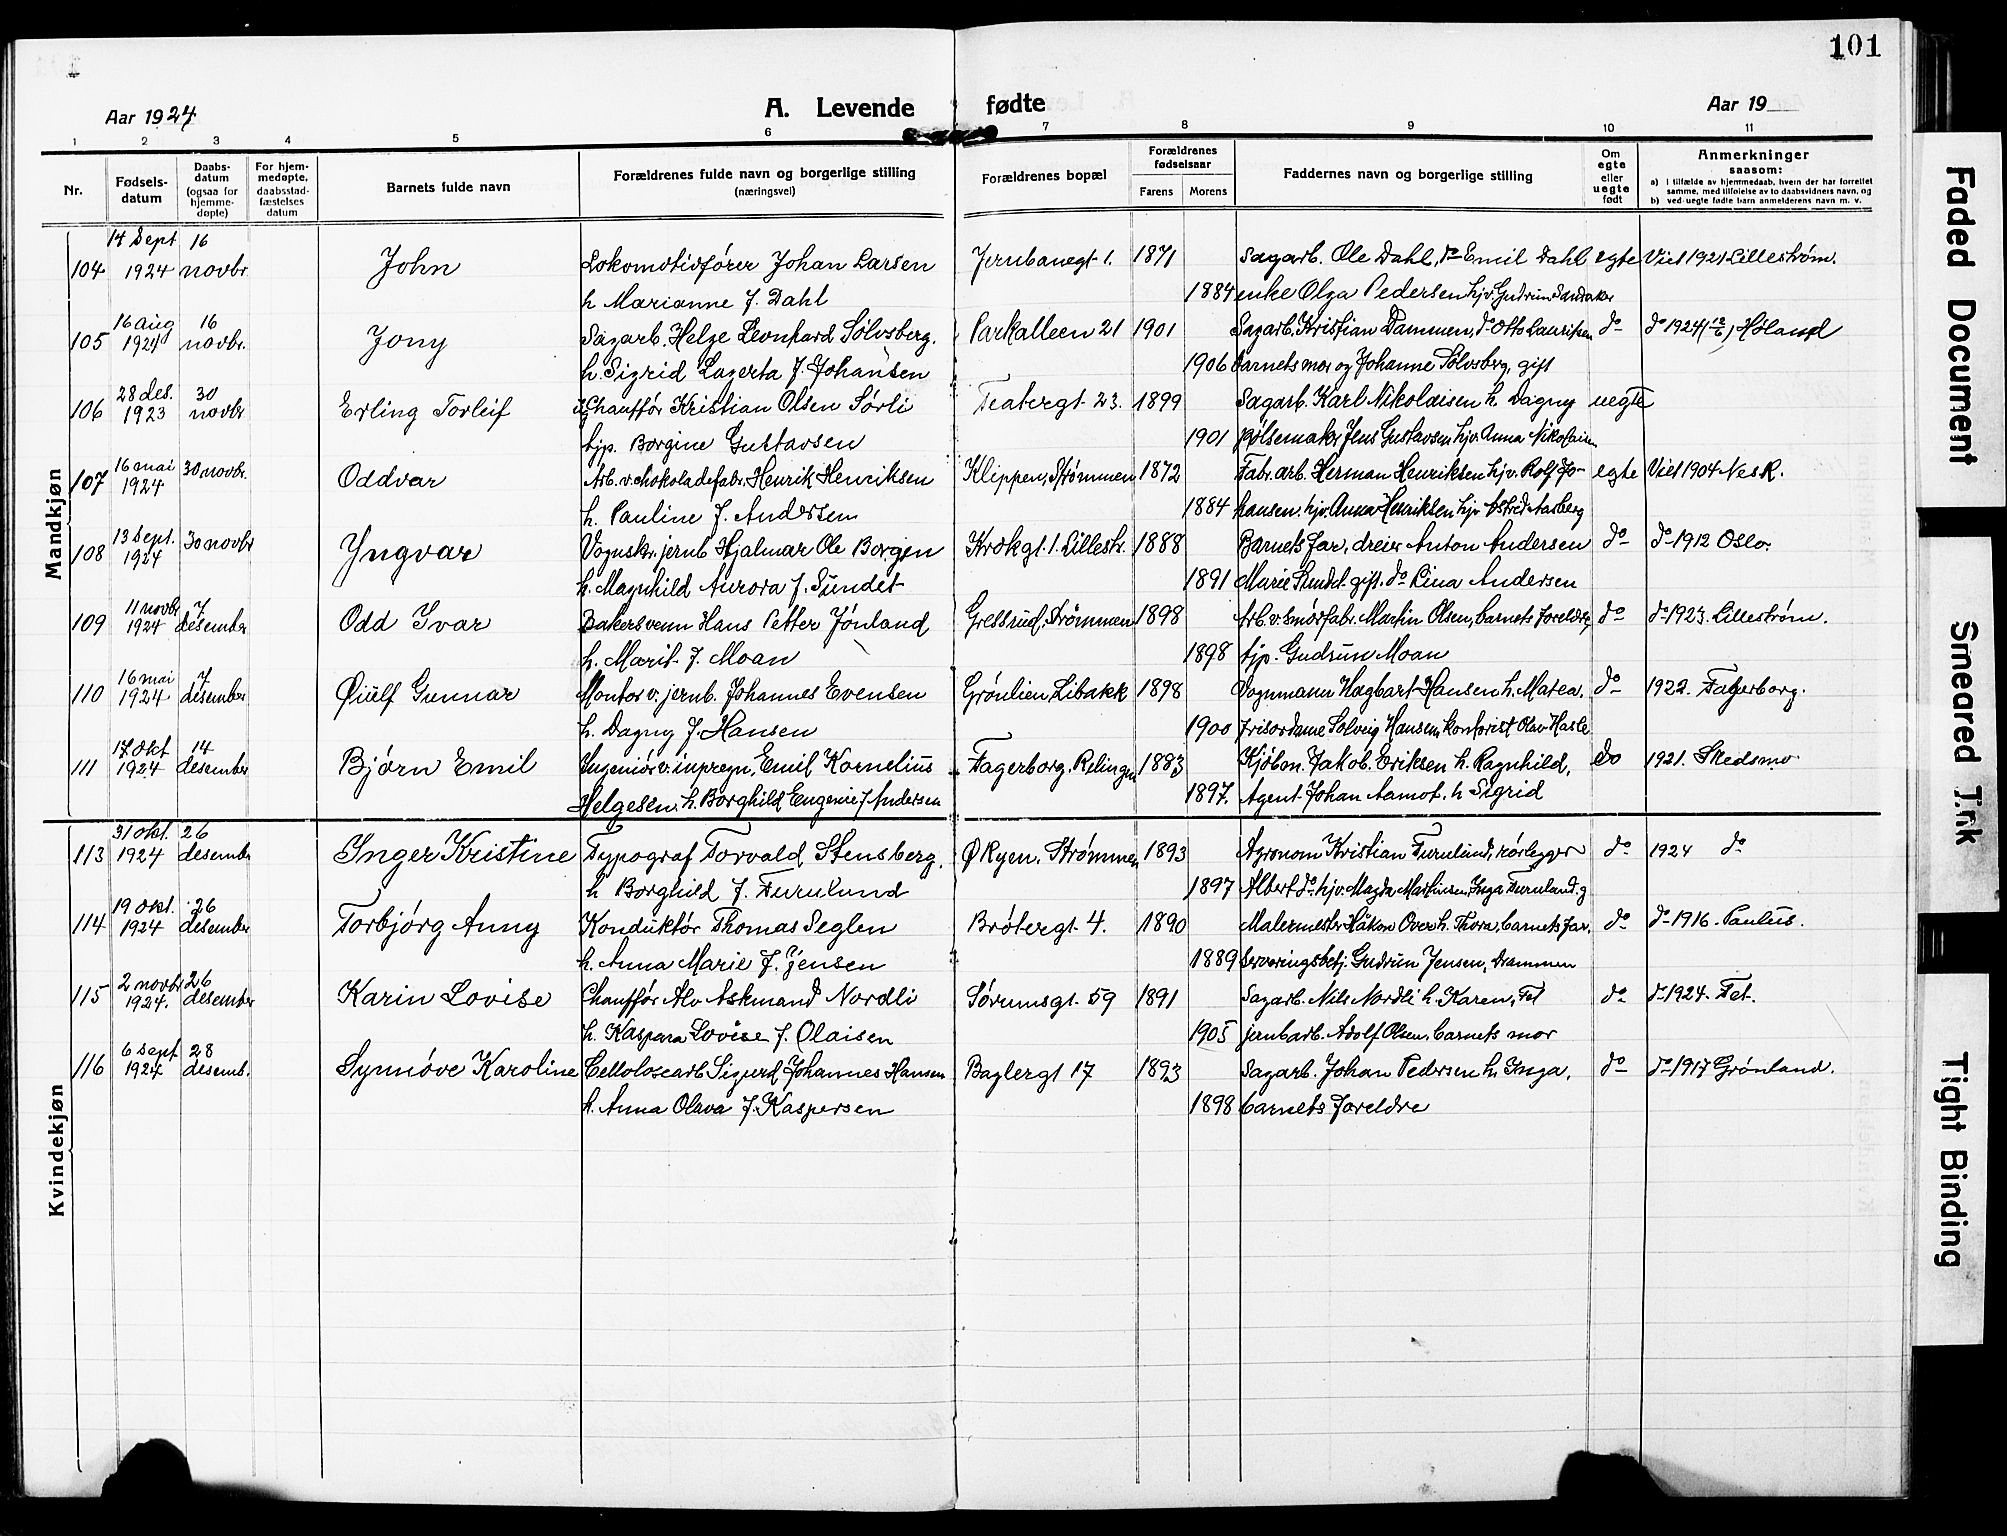 101
Aar 1924
A. Levende fødte
Aar 19
1 2 3 4 5 6 7 8 9 10 11
Nr.
Fødsels-
datum
Daabs-
datum
(ogsaa for
hjemme-
døpte)
For hjem-
medøpte,
daabsstad-
fæstelses
datum
Barnets fulde navn
Forældrenes fulde navn og borgerlige stilling
(næringsvei)
Forældrenes bopæl
Forældrenes
fødselsaar
Farens Morens
Faddernes navn og borgerlige stilling
Om
egte
eller
uegte
født
Anmerkninger
saasom:
a) i tilfælde av hjemmedaab, hvem der har forrettet
samme, med tilføielse av to daabsvidners navn, og
b) ved uegte fødte barn anmelderens navn m. v.
Mandkjøn
14 Sept 16
104 1924 novbr John Lokomotivfører Johan Larsen Jernbanegt 1. 1871 Sagarb. Ole Dahl, do Emil Dahl egte Viet 1921 Lillestrøm.
h Marianne f. Dahl 1884 enke Olga Pedersen hjv. Gudrun Sandaker
16 aug 16
105 1924 novbr. Jony Sagarb. Helge Leonhard Sølvsberg. Parkalleen 21 1901 Sagarb. Kristian Dammen, do Otto Lauritsen do do 1924 Høland
h. Sigrid Lagerta f. Johansen 1906 barnets mor og Johanne Sølvsberg, gift
28 des. 30
106 1923 novbr Erling Torleif Chauffør Kristian Olsen Sørli Teatergt. 23. 1899 Sagarb. Karl Nikolaisen h. Dagny uegte
tjp. Borgine Gustavsen 1901 pølsemaker Jens Gustavsen hjv. Anna Nikolaisen
16 mai 30 novbr.
107 1924 Oddvar Arb. v. chokoladefabr. Henrik Henriksen Klippen, Strømmen 1872 Fabr. arb. Herman Henriksen hjv. Rolf Jo- egte Viet 1904 Nes R.
h. Pauline f. Andersen 1884 hansen. hjv. Anna Henriksen hjv Astrid Aarberg
13 Sept. 30 novbr
108 1924 Yngvar Vognskr. jernb Hjalmar Ole Borgen Krokgt. 1. Lillestr. 1888 Barnets far, dreier Anton Andersen do do 1912 Oslo.
h. Magnhild Aurora f. Sundet 1891 Marie Sundet gift. do Lina Andersen
11 novbr 7
109 1924 desember Odd Ivar Bakersvenn Hans Petter Jønland Gresrud, Strømmen 1898 Arb. v. smørfabr. Martin Olsen, barnets foreldre, do do 1923. Lillestrøm.
h. Marit f. Moan 1898 tjp. Gudrun Moan
16 mai 7
110 1924 desember Øiulf Gunnar Montør v. jernb. Johannes Evensen Grønlien, Libakk 1898 Vognmann Hagbart Hansen h. Matea, do 1922. Fagerborg.
h. Dagny f. Hansen 1900 frisørdame Solveig Hansen, kontorist Olav Hasle
17 okt 14
111 1924 desember Bjørn Emil Ingeniør v. impregn. Emil Kornelius Fagerborg. Relingen 1883 Kjøbm. Jakob Eriksen h. Ragnhild, do 1921. Skedsmo
Helgesen. h. Borghild Eugenie f Andersen 1897. Agent Johan Aamot. h Sigrid
Kvindekjøn
31 okt. 26
113 1924 desembr Inger Kristine Typograf Torvald Stensberg, Økyen, Strømmen 1893 Agronom Kristian Furulund, rørlegger do 1924 do
h Borghild f. Furulund 1897 Albert do hjv. Magda Martinsen, Inga Furuland. g
19 okt. 26
114 1924 desember Torbjørg Anny Konduktør Thomas Seglen Brøtergt. 4. 1890 Malermester Håkon Over h. Thora, barnets far, do do 1916. Paulus.
h. Anna Marie f. Jensen 1889 Serveringsbetj. Gudrun Jensen, Drammen
2 novbr 26
115 1924. desember Karin Lovise Chauffør Alv Askmand Nordli Sørumsgt. 59 1891 Sagarb. Nils Nordli h. Karen, Fet do do 1924. Fet.
h. Kaspara Lovise f. Olaisen 1905 jernbarb. Adolf Olsen, barnets mor
6 Sept 28
116 1924 desemb. Synnøve Karoline Cellolosearb Sigurd Johannes Hansen Baglergt 17 1893 Sagarb. Johan Pedersen h. Inga, do do 1917 Grønland.
h. Anna Olava f. Kaspersen 1898 barnets foreldre
Faded Document
Smeared Ink
Tight Binding